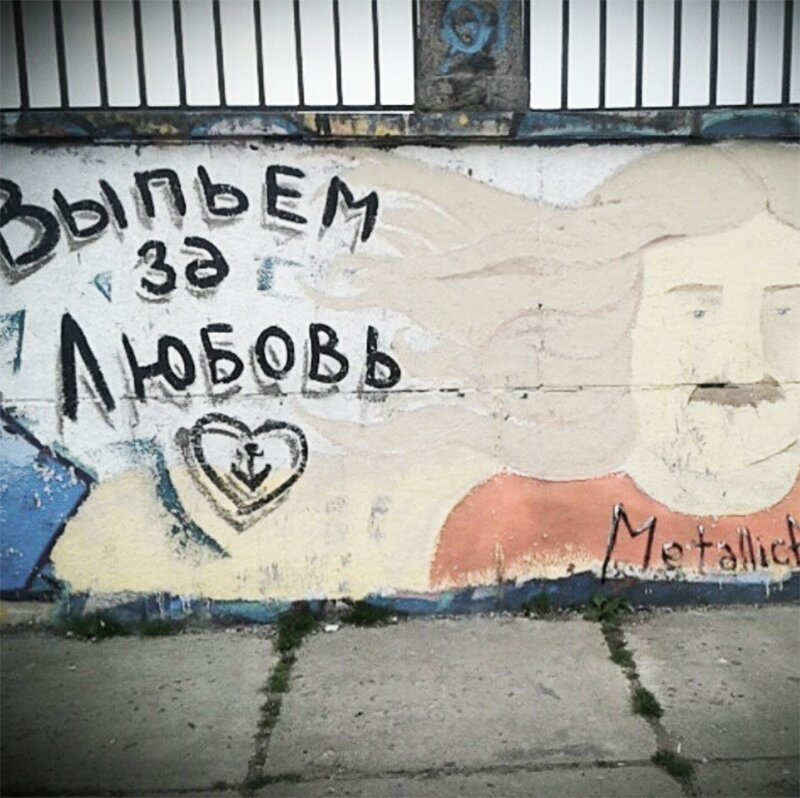 Выпьем
за
Любовь
Metallich